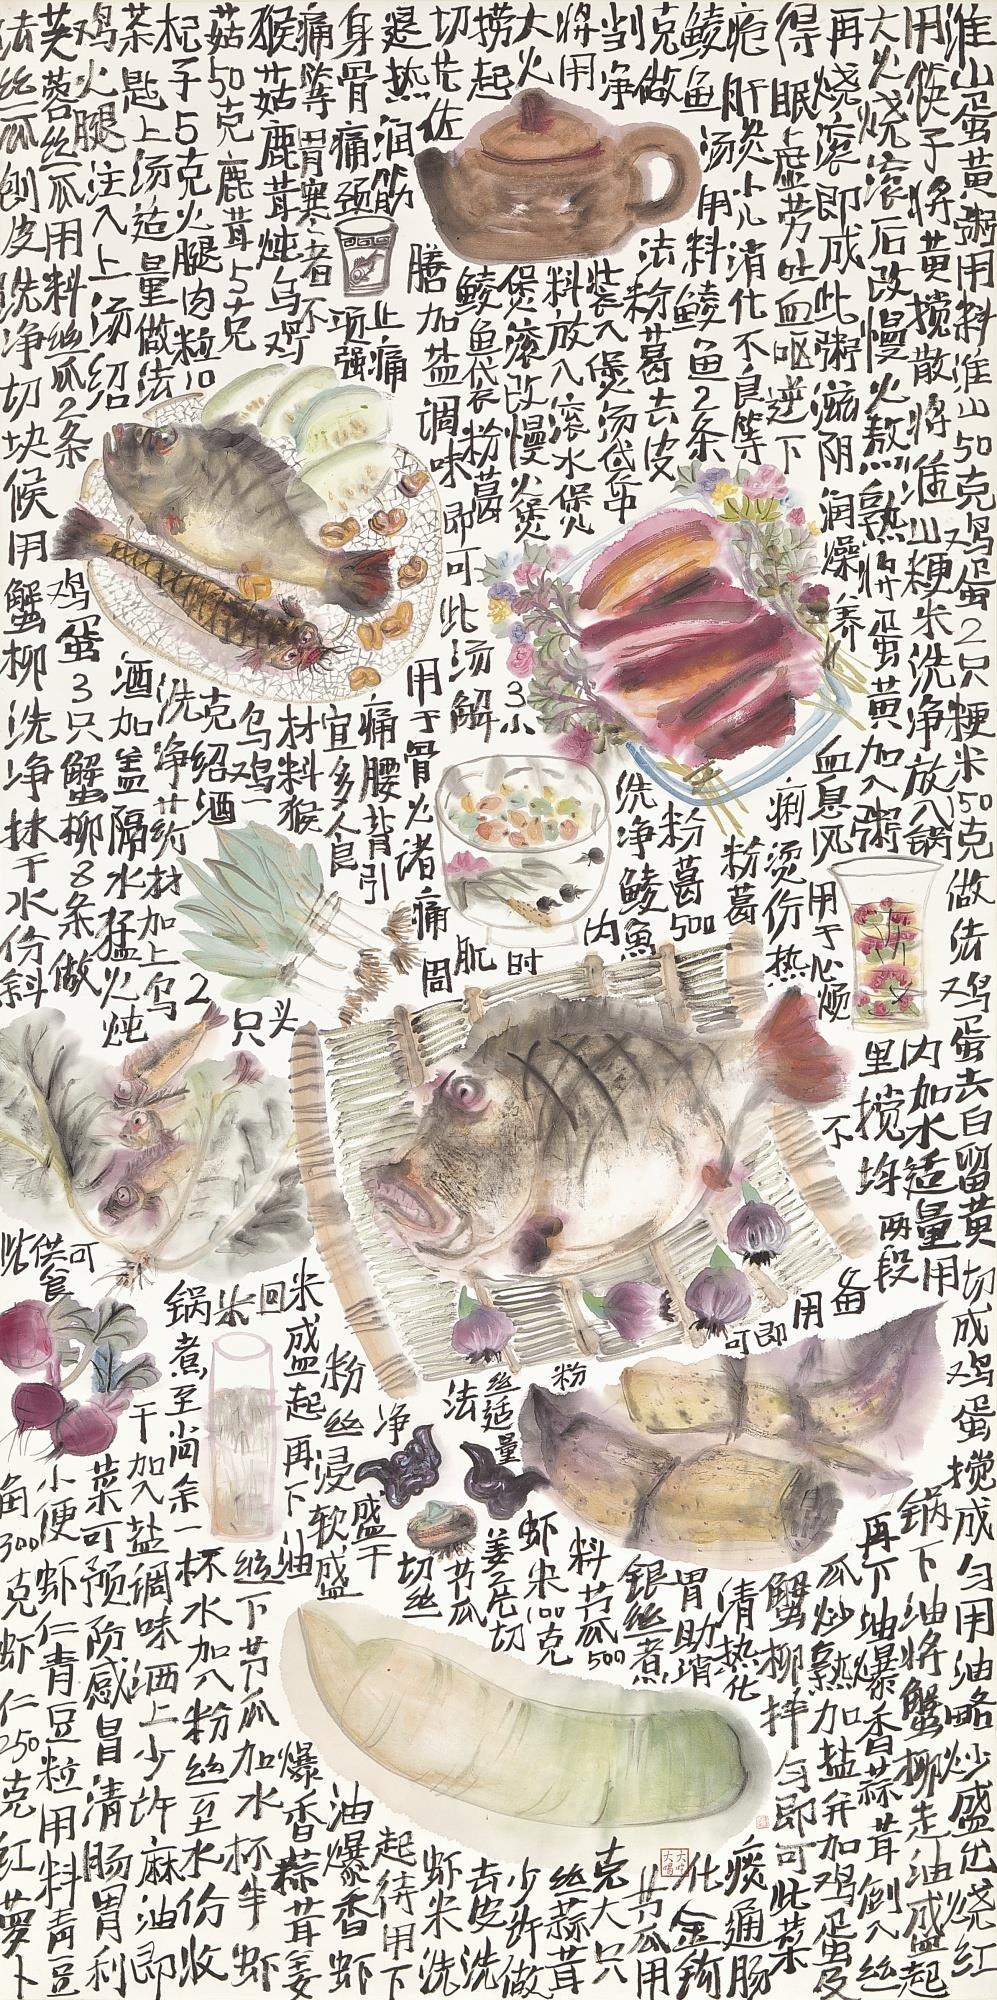 淮山蛋黄粥用料淮山50克鸡蛋2只粳米150克做法鸡蛋去白留黄
用筷子将黄搅散将淮山粳米洗净放入锅
内加水适量用
大火烧滚后改慢火熬熟将蛋黄加入粥
里搅均
再烧滚即成此粥滋阴润燥养
血息风
用于心烦
不
得眠虚劳吐血呕逆下
痢烫伤热
疮肝炎小儿消化不良等
粉葛
鲮鱼汤用料鲮鱼2条
粉葛500
克做法粉葛去皮
洗净鲮魚
剖净
装入煲汤袋中
内
将用
料放入滚水煲
大火
煲滚改慢火煲
3小
时
捞起
鲮魚袋粉葛
切花佐
膳加盐调味即可此汤解
肌
退热润筋
止痛
用于骨火诸痛
周
身骨痛颈
项强
痛腰背引
痛等胃寒者不
宜多人食
猴菇鹿茸炖乌鸡
材料猴
头
菇50克鹿茸5克
乌鸡一
只
杞子5克火腿肉粒10
克绍酒
2
茶匙上汤适量做法
洗净药材加上乌
鸡火腿注入上汤绍
酒加盖隔水猛火炖
芙蓉丝瓜用料丝瓜2条
鸡蛋3只蟹柳8条做
法丝瓜刨皮洗净切块候用蟹柳洗净抹干水份斜
切成鸡蛋搅成匀用油略炒盛出烧红
两段
备用
锅下油将蟹柳走油盛起
再下油爆香蒜茸倒入丝
瓜炒熟加盐并加鸡蛋及
蟹柳拌匀即可此菜
清热化痰通肠
胃助消化
银丝煮节瓜用
料节瓜500克大只
虾米100克
姜2片切丝蒜茸少许做
粉丝适量
法
节瓜去皮洗
净
切丝
虾米洗
盛干
起待用下
粉丝浸软盛
油爆香虾
米盛起再下油
爆香蒜茸姜
丝下节瓜加水一杯半
回
锅煮至尚余一杯水加入粉丝至水份收
干加入盐调味洒上少许麻油即
可
供食
菜可预防感冒清肠胃利
小便虾仁青豆粒用料青豆
角300克虾仁250克红萝卜